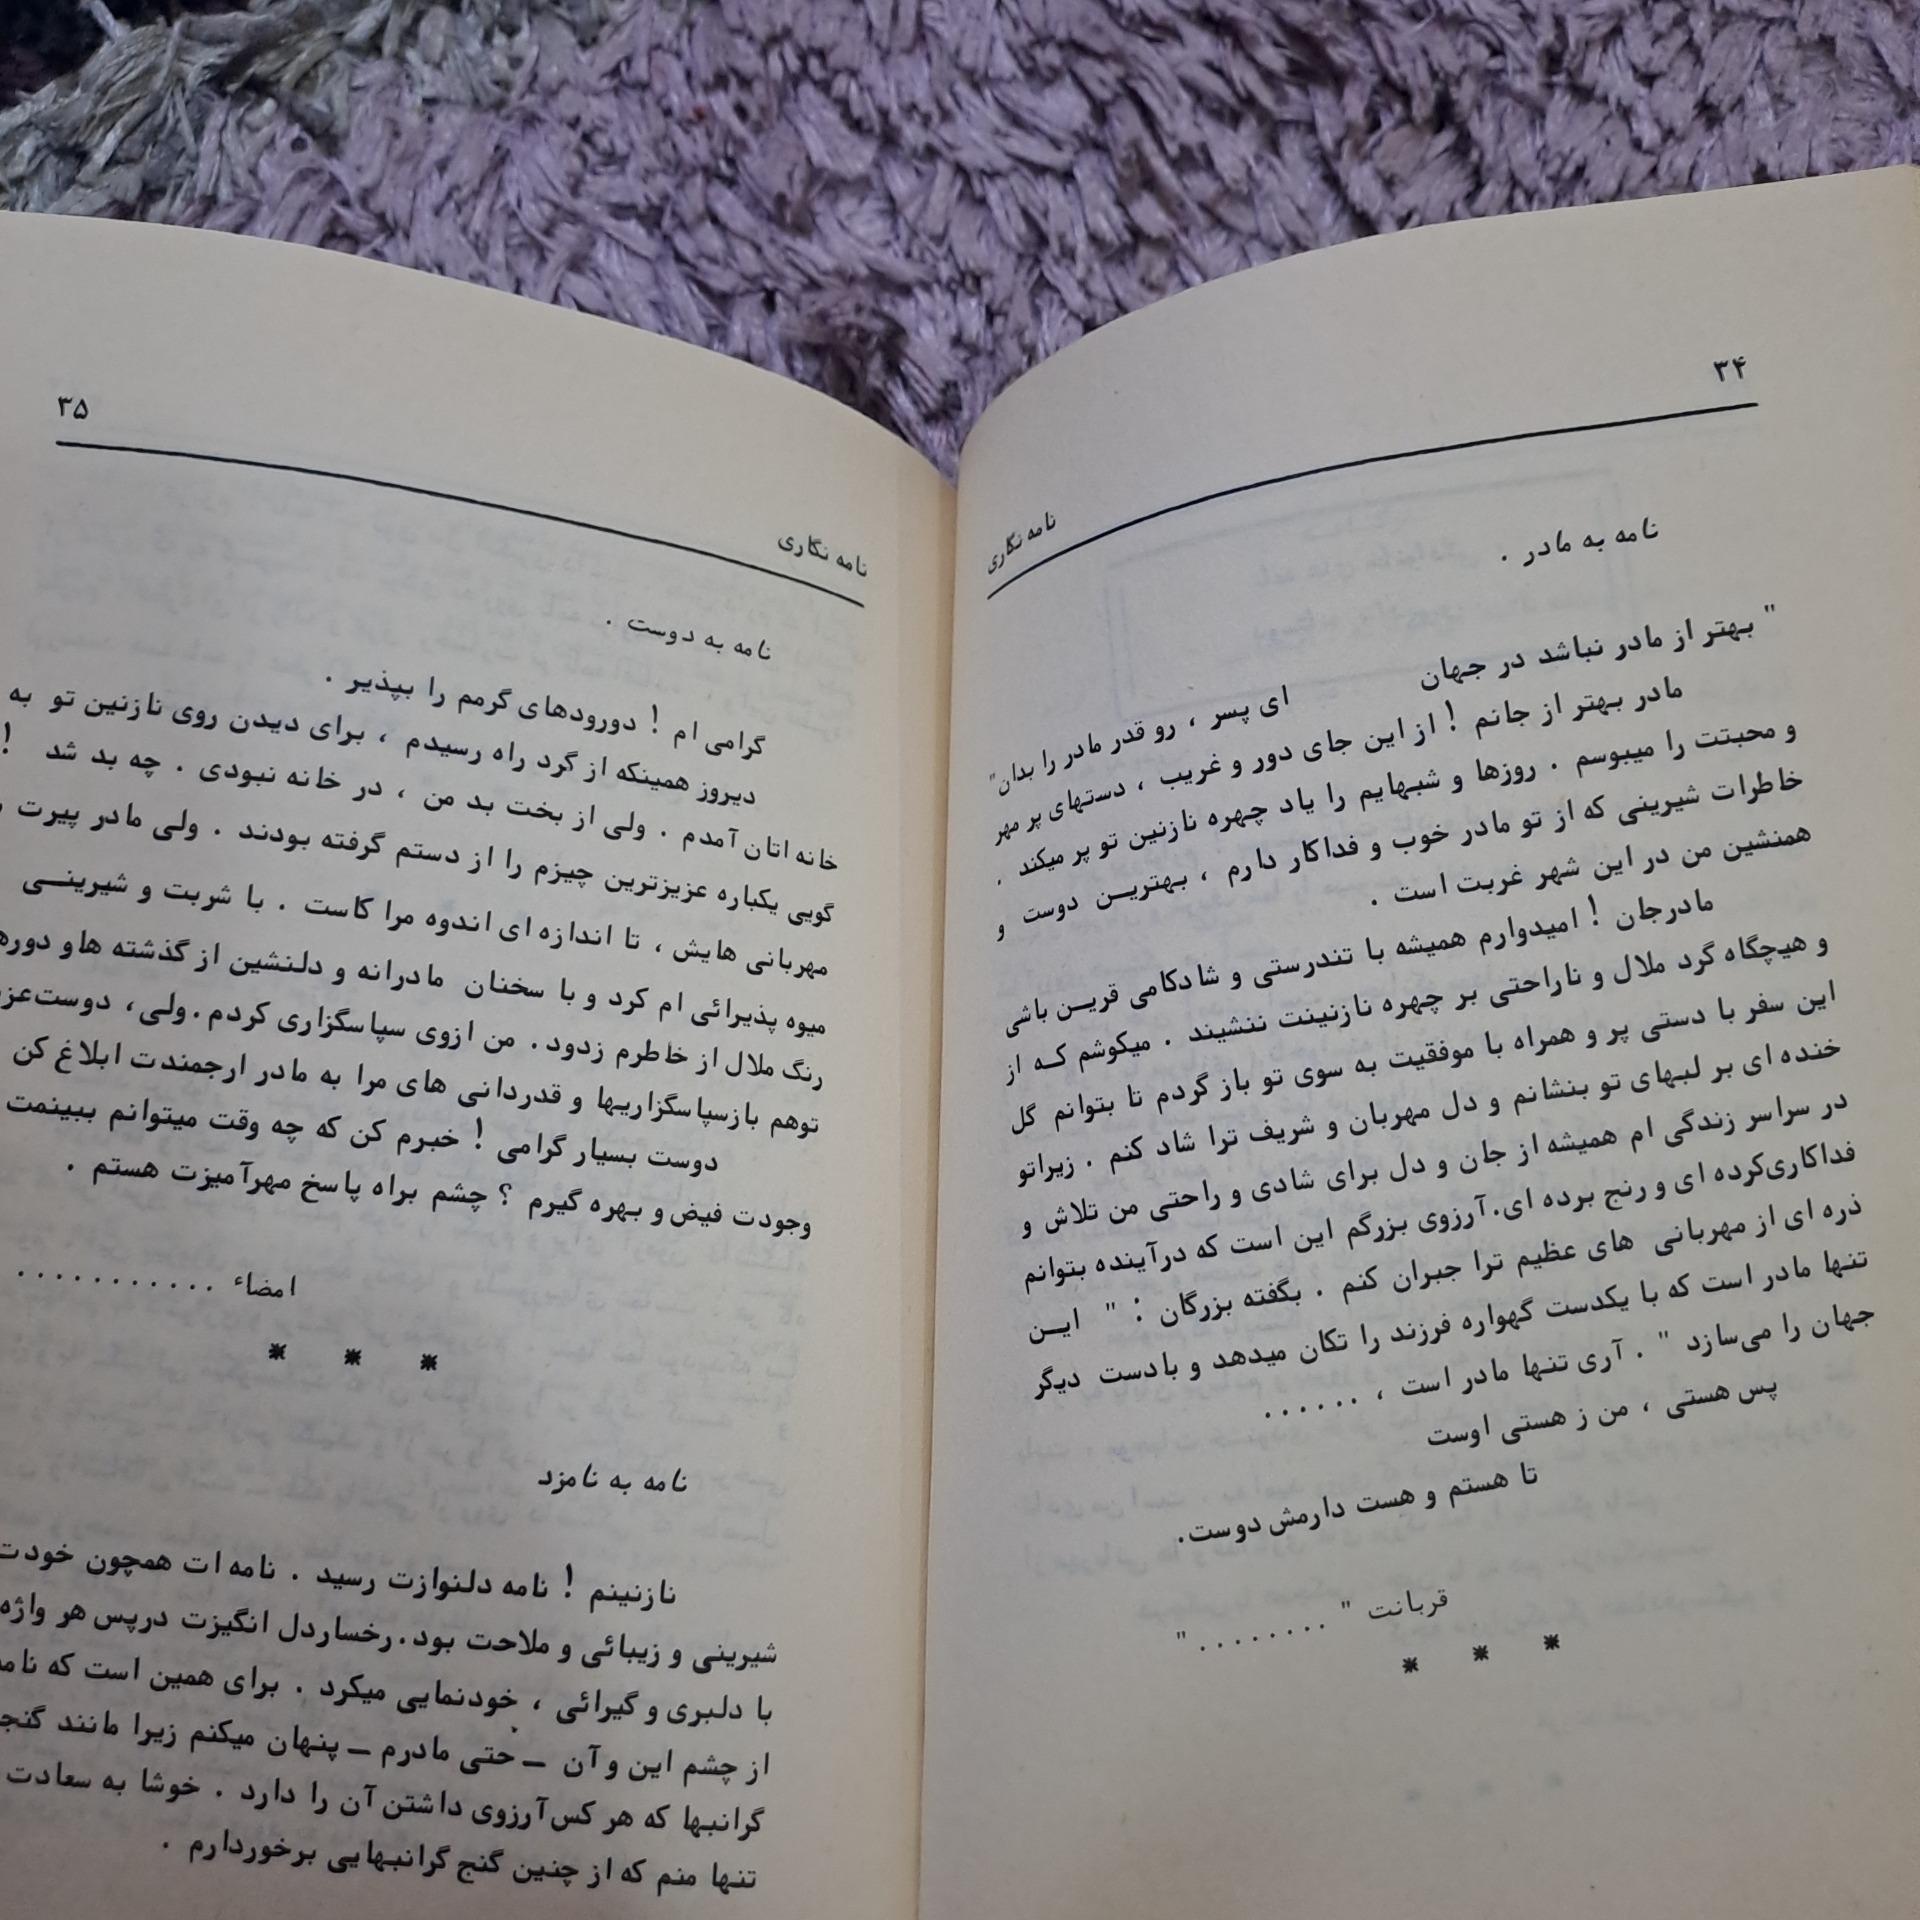 ۳۴
نامه نگاری
نامه به مادر .
" بهتر از مادر نباشد در جهان
ای پسر ، رو قدر مادر را بدان"
مادر بهتر از جانم ! از این جای دور و غریب ، دستهای پر مهر
و محبتت را میبوسم . روزها و شبهایم را یاد چهره نازنین تو پر میکند .
خاطرات شیرینی که از تو مادر خوب و فداکار دارم ، بهترین دوست و
همنشین من در این شهر غربت است .
مادرجان ! امیدوارم همیشه با تندرستی و شادکامی قرین باشی
و هیچگاه گرد ملال و ناراحتی بر چهره نازنینت ننشیند . میکوشم که از
این سفر با دستی پر و همراه با موفقیت به سوی تو باز گردم تا بتوانم گل
خنده ای بر لبهای تو بنشانم و دل مهربان و شریف ترا شاد کنم . زیراتو
در سراسر زندگی ام همیشه از جان و دل برای شادی و راحتی من تلاش و
فداکاری‌کرده ای و رنج برده ای. آرزوی بزرگم این است که درآینده بتوانم
ذره ای از مهربانی های عظیم ترا جبران کنم . بگفته بزرگان : " این
تنها مادر است که با یکدست گهواره فرزند را تکان میدهد و بادست دیگر
جهان را می‌سازد " . آری تنها مادر است ، ......
پس هستی ، من ز هستی اوست
تا هستم و هست دارمش دوست.
قربانت " ........ "
* * *
۳۵
نامه نگاری
نامه به دوست .
گرامی ام ! دورودهای گرمم را بپذیر .
دیروز همینکه از گرد راه رسیدم ، برای دیدن روی نازنین تو به
خانه اتان آمدم . ولی از بخت بد من ، در خانه نبودی . چه بد شد !
گویی یکباره عزیزترین چیزم را از دستم گرفته بودند . ولی مادر پیرت
مهربانی هایش ، تا اندازه ای اندوه مرا کاست . با شربت و شیرینی
میوه پذیرائی ام کرد و با سخنان مادرانه و دلنشین از گذشته هاو
رنگ ملال از خاطرم زدود. من ازوی سپاسگزاری کردم. ولی ،
توهم بازسپاسگزاریها و قدردانی های مرا به مادر ارجمندت ابلاغ کن
دوست بسیار گرامی ! خبرم کن که چه وقت میتوانم ببینمت
وجودت فیض و بهره گیرم ؟ چشم براه پاسخ مهرآمیزت هستم .
امضاء ...........
* * *
نامه به نامزد
نازنینم ! نامه دلنوازت رسید . نامه ات همچون خودت
شیرینی و زیبائی و ملاحت بود. رخساردل انگیزت درپس هر واژه
با دلبری و گیرائی ، خودنمایی میکرد . برای همین است که
از چشم این و آن ــ حتی مادرم ــ پنهان میکنم زیرا مانند
گرانبها که هر کس آرزوی داشتن آن را دارد . خوشا به سعادت
تنها منم که از چنین گنج گرانبهایی برخوردارم .